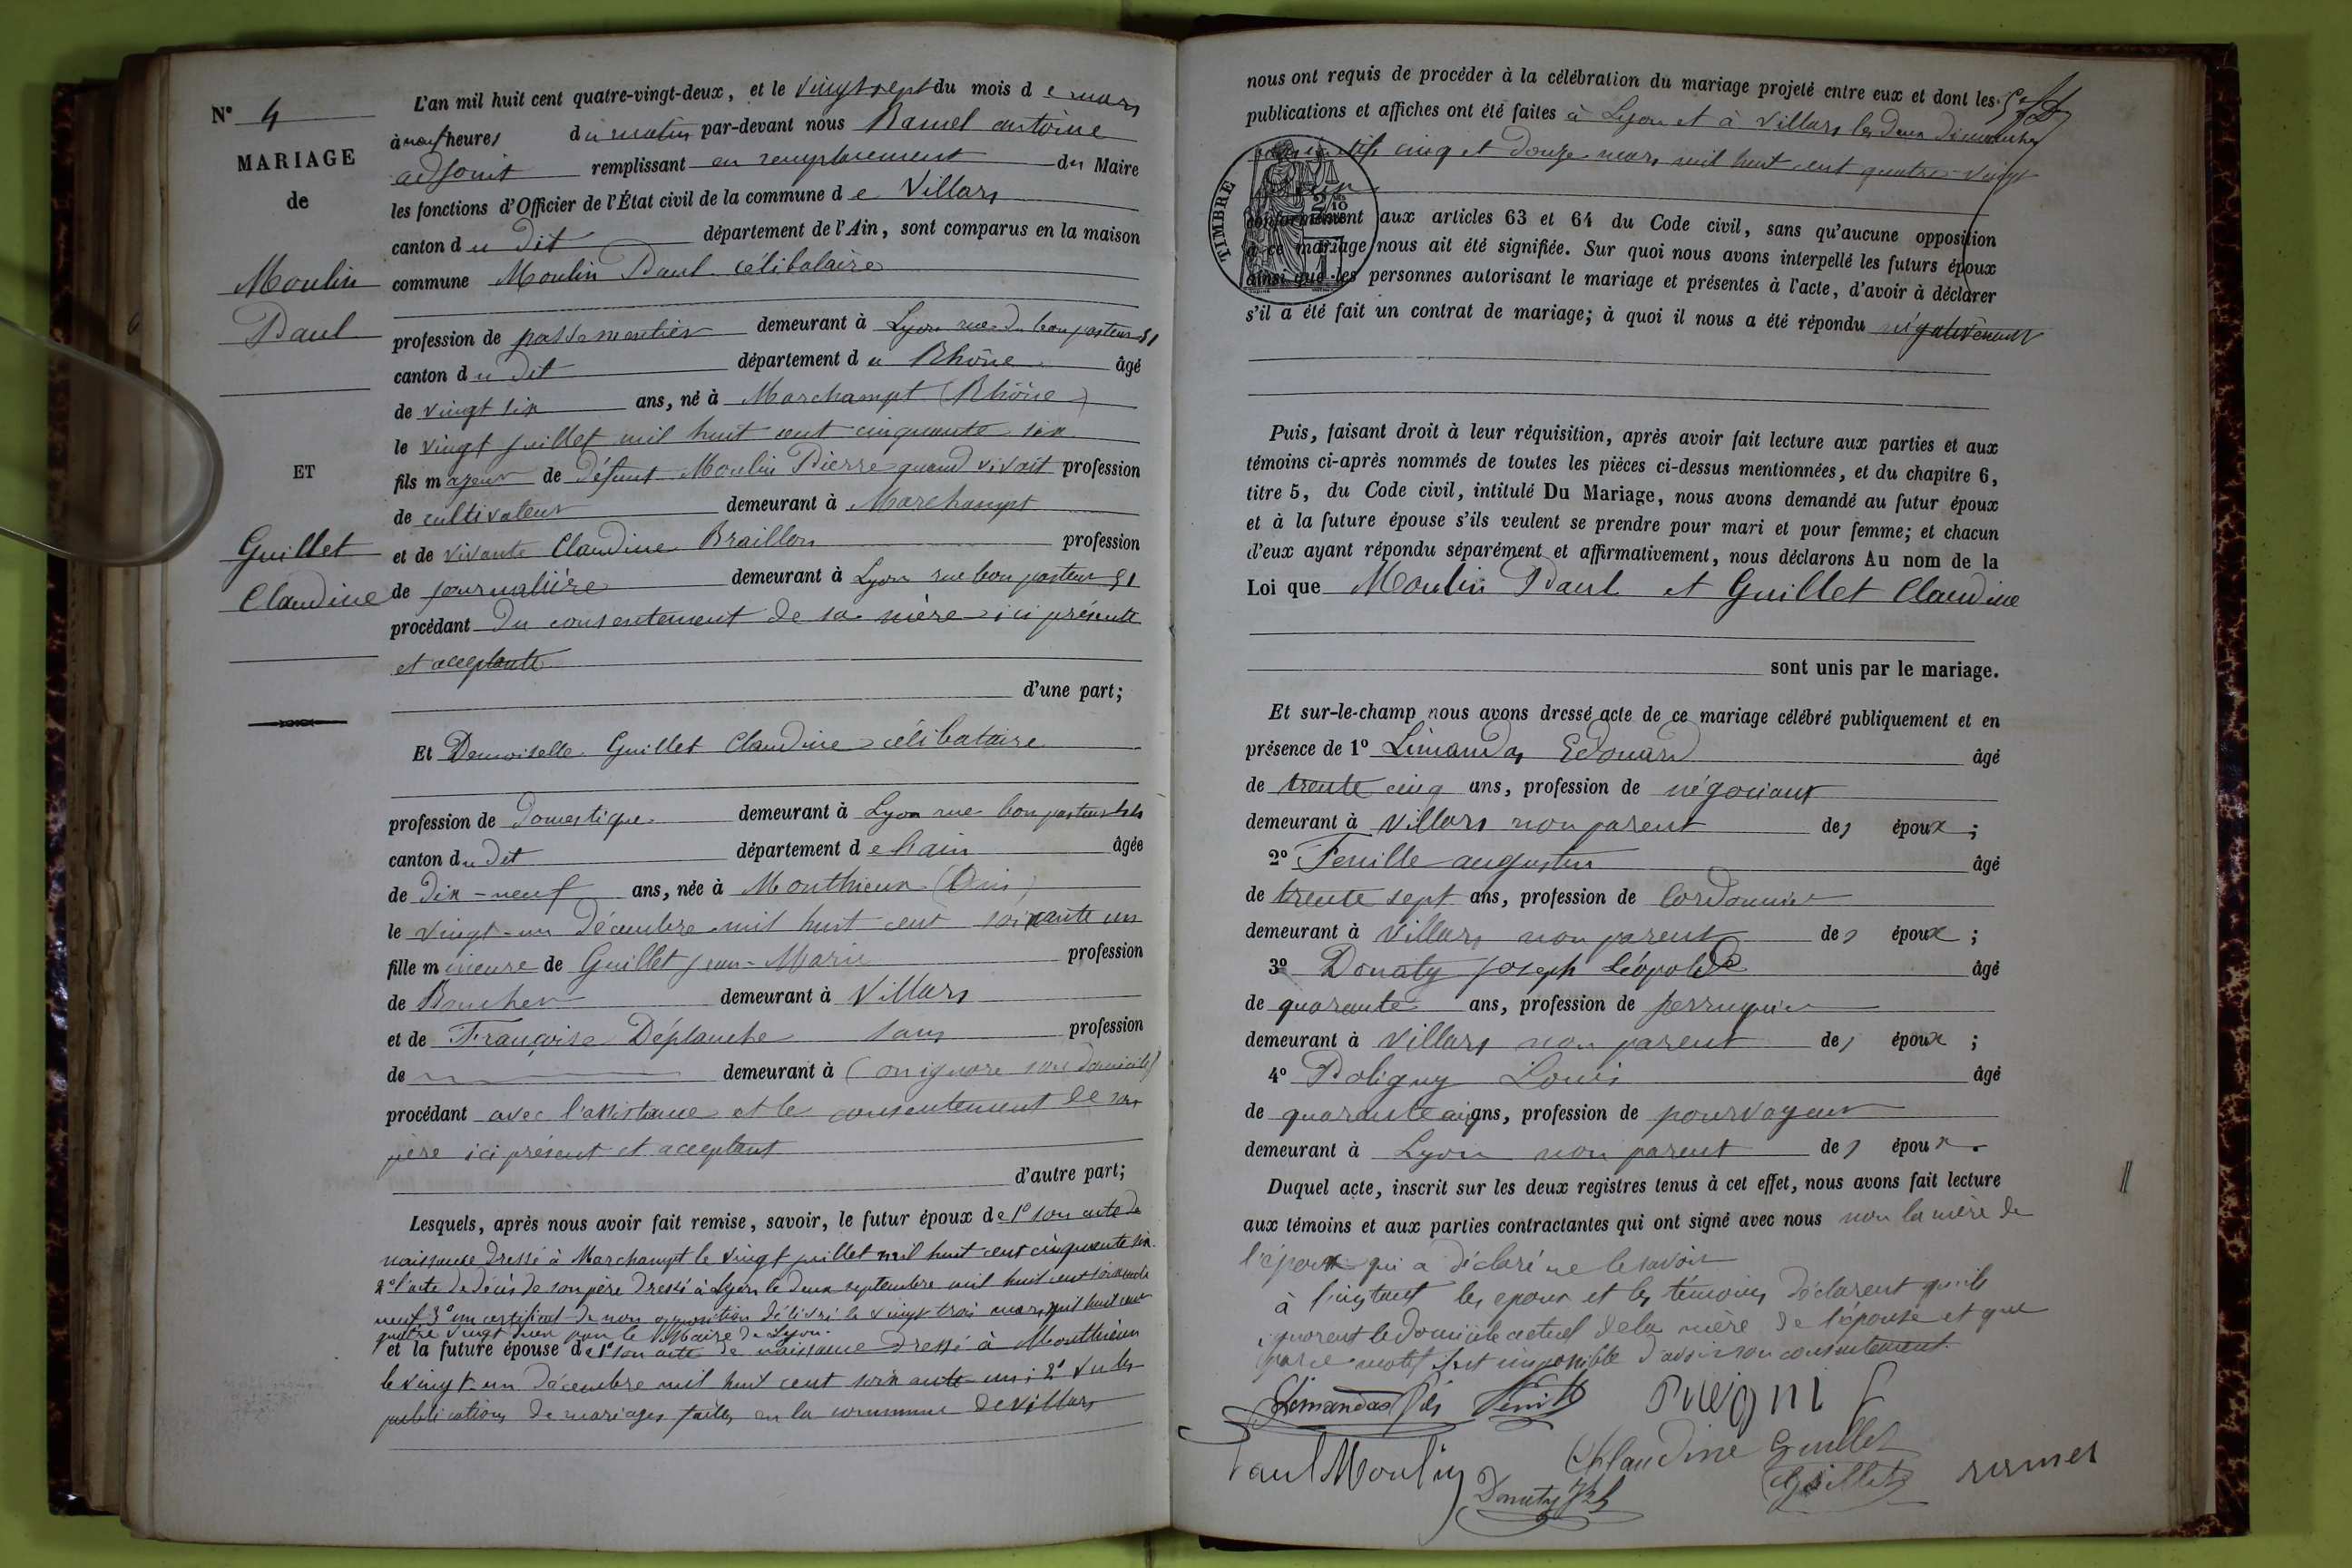 N° 4
MARIAGE
de
Moulin
Paul
ET
Guillet
Claudine
L'an mil huit cent quatre-vingt-deux, et le vingt sept du mois de mars
à neuf heures du matin par-devant nous Ramel antoine
adjoint remplissant en remplacement du Maire
les fonctions d'Officier de l'État civil de la commune de Villars
canton du dit département de l'Ain, sont comparus en la maison
commune Moulin Paul célibataire
profession de passementier demeurant à Lyon rue du bon pasteur 51
canton du dit département du Rhône âgé
de vingt six ans, né à Marchampt (Rhône)
le vingt juillet mil huit cent cinquante six
fils majeur de défunt Moulin Pierre quand vivait profession
de cultivateur demeurant à Marchampt
et de vivante Claudine Braillon profession
de journalière demeurant à Lyon rue bon pasteur 51
procédant du consentement de sa mère ici présente
et acceptante
d'une part;
Et Demoiselle Guillet Claudine célibataire
profession de domestique demeurant à Lyon rue bon pasteur
canton du dit département de l'ain âgée
de dix-neuf ans, née à Monthieux (Ain)
le vingt-un décembre mil huit cent soixante un
fille mineure de Guillet Jean-Marie profession
de Boucher demeurant à Villars
et de Françoise Déplanche sans profession
de demeurant à (on ignore son domicile)
procédant avec l'assistance et le consentement de son
père ici présent et acceptant
d'autre part;
Lesquels, après nous avoir fait remise, savoir, le futur époux de 1° son acte de
naissance dressé à Marchampt le vingt juillet mil huit cent cinquante six
2° l'acte de décès de son père dressé à Lyon le deux septembre mil huit cent soixante
neuf 3° un certificat de non opposition délivré le vingt trois mars mil huit cent
quatre vingt deux par le Maire de Lyon.
et la future épouse de 1° son acte de naissance dressé à Monthieux
le vingt-un décembre mil huit cent soixante un; 2° les
publications de mariages faites en la commune de Villars
nous ont requis de procéder à la célébration du mariage projeté entre eux et dont les
publications et affiches ont été faites à Lyon et à Villars les deux dimanches
cinq et douze mars mil huit cent quatre vingt
TIMBRE
conformément aux articles 63 et 64 du Code civil, sans qu'aucune opposition
à ce mariage nous ait été signifiée. Sur quoi nous avons interpellé les futurs époux
ainsi que les personnes autorisant le mariage et présentes à l'acte, d'avoir à déclarer
s'il a été fait un contrat de mariage; à quoi il nous a été répondu négativement
Puis, faisant droit à leur réquisition, après avoir fait lecture aux parties et aux
témoins ci-après nommés de toutes les pièces ci-dessus mentionnées, et du chapitre 6,
titre 5, du Code civil, intitulé Du Mariage, nous avons demandé au futur époux
et à la future épouse s'ils veulent se prendre pour mari et pour femme; et chacun
d'eux ayant répondu séparément et affirmativement, nous déclarons Au nom de la
Loi que Moulin Paul et Guillet Claudine
sont unis par le mariage.
Et sur-le-champ nous avons dressé acte de ce mariage célébré publiquement et en
présence de 1° Limandas Edouard âgé
de trente cinq ans, profession de négociant
demeurant à Villars non parent des époux;
2° Fenille augustin âgé
de trente sept ans, profession de Cordonnier
demeurant à Villars non parent des époux;
3° Donaty Joseph Léopold âgé
de quarante ans, profession de perruquier
demeurant à Villars non parent des époux;
4° Poligny Louis âgé
de quarante ans, profession de pourvoyeur
demeurant à Lyon non parent des époux.
Duquel acte, inscrit sur les deux registres tenus à cet effet, nous avons fait lecture
aux témoins et aux parties contractantes qui ont signé avec nous non la mère de
l'époux qui a déclaré ne le savoir
à l'instant les epoux et les témoins déclarent qu'ils
ignorent le domicile actuel de la mère de l'épouse et que
par ce motif il est impossible d'avoir son consentement.
Limandas fils
Paul Moulin Claudine Guillet
Donaty Guillet